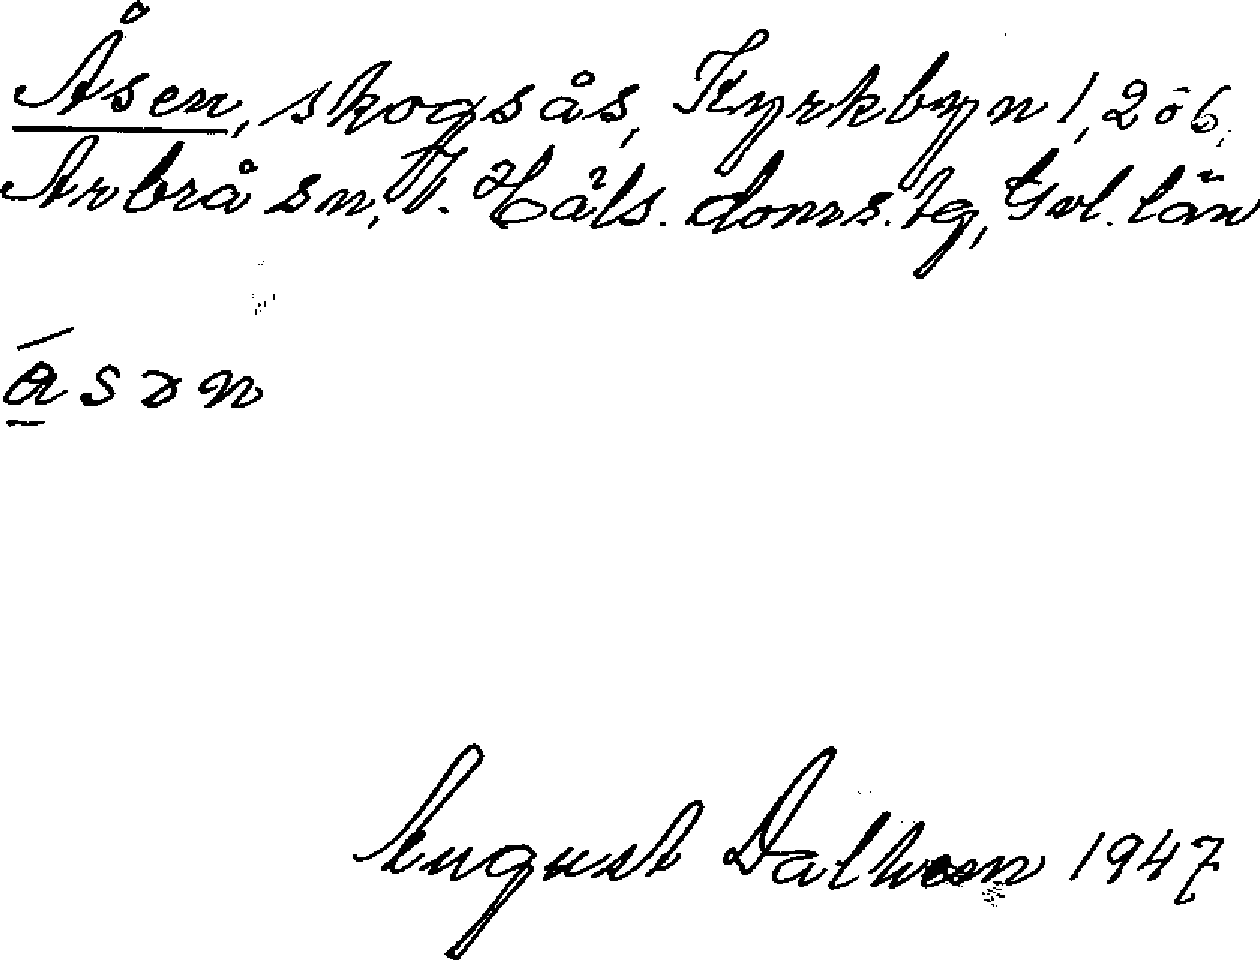 Åsen, skogsås, Kyrkbyn 1, 2 o 6,
Arbrå sn, V. Häls. doms. tg, Gvl. län
åsən
August Dalk 1947